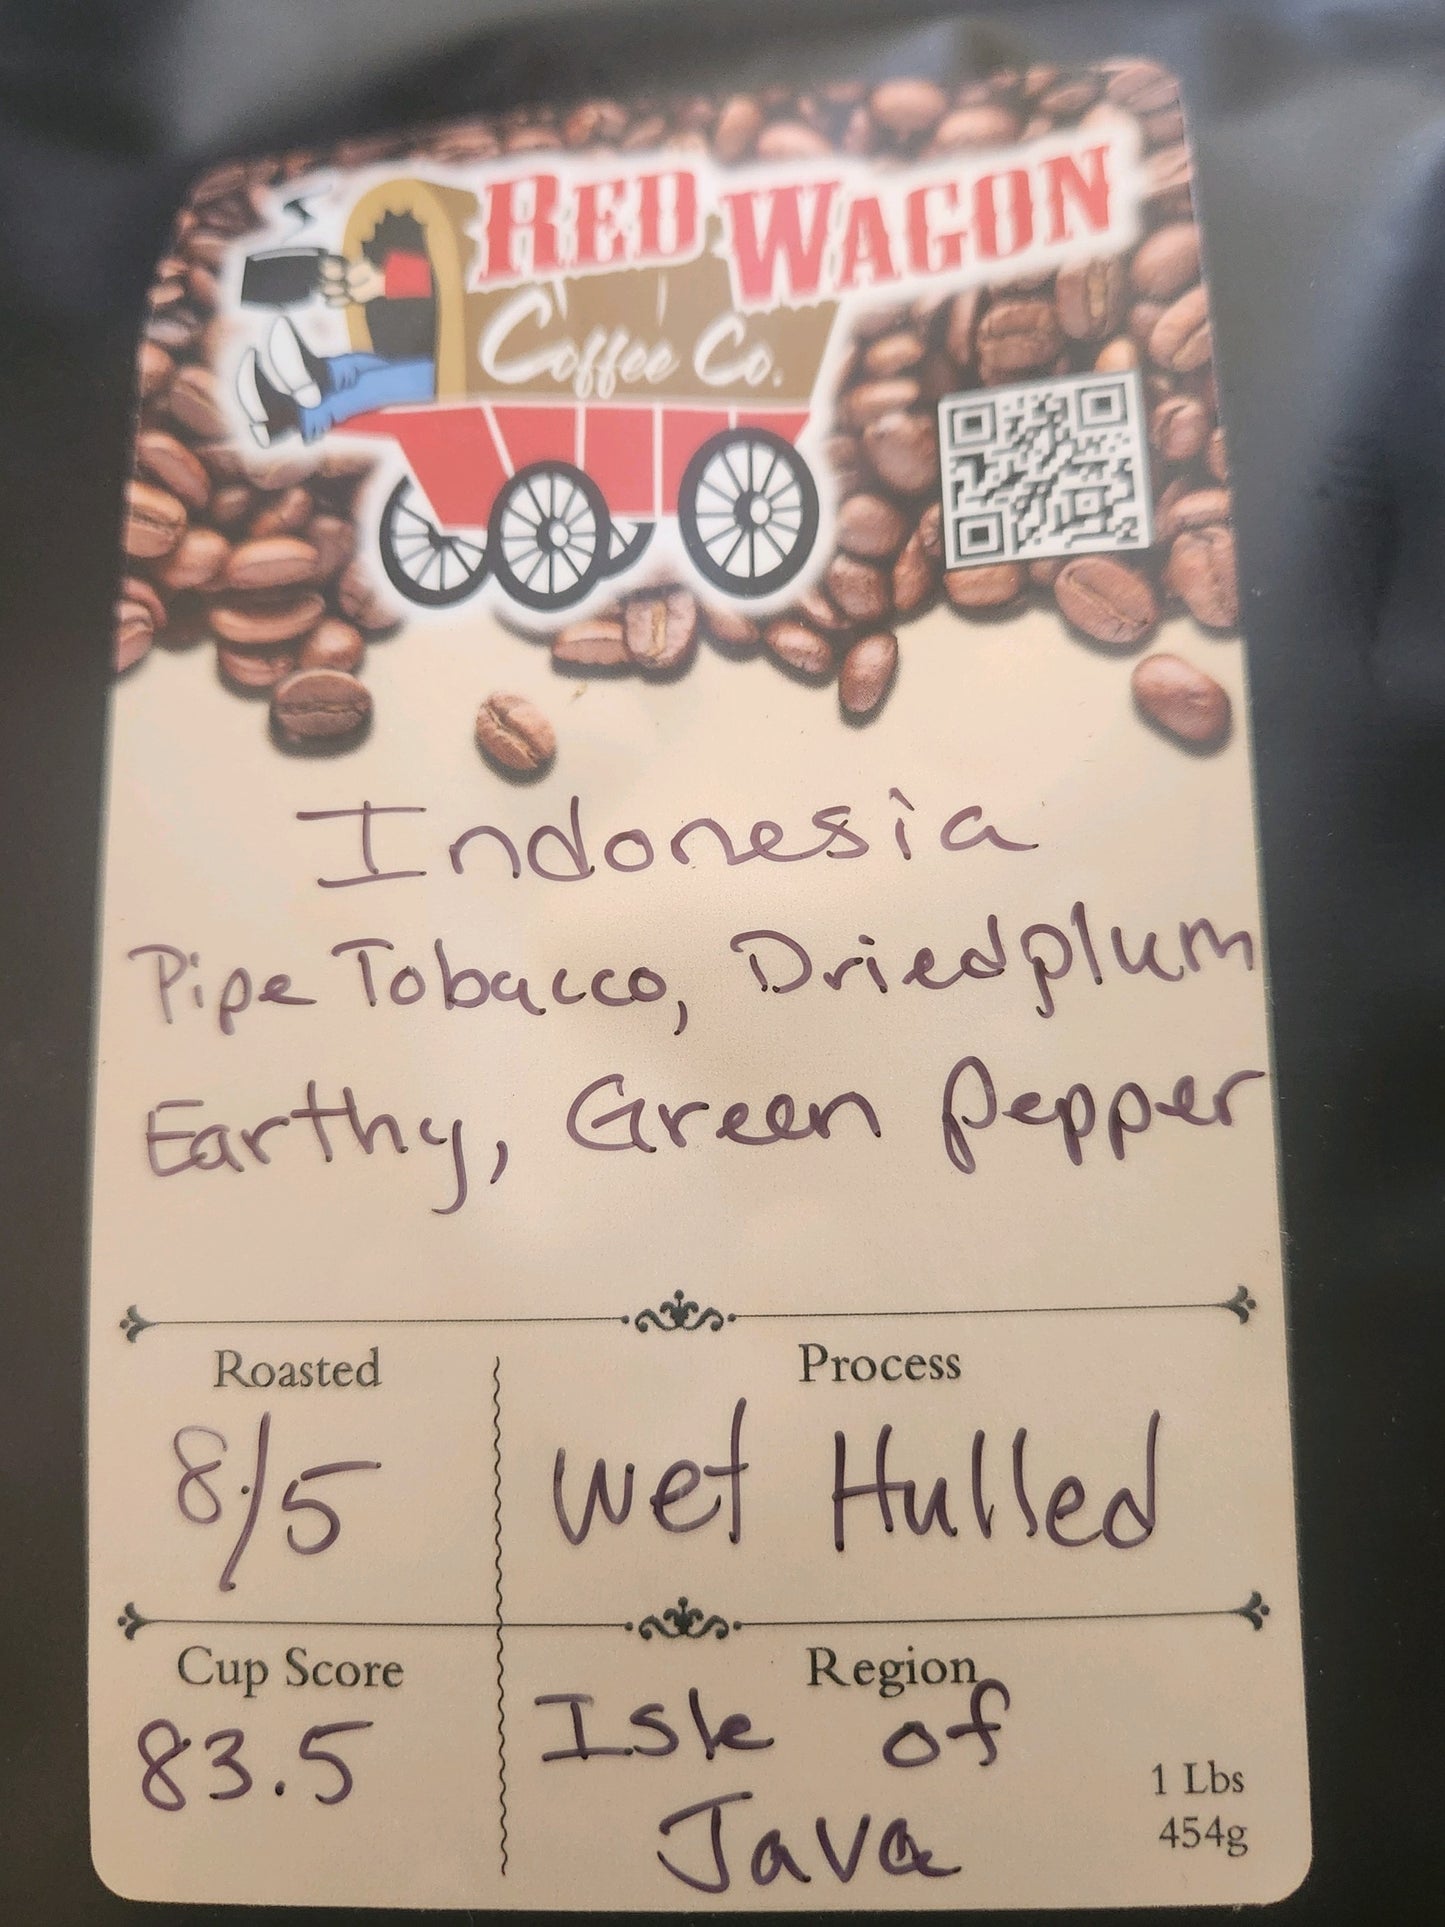 RED WAGON
Coffee Co.
Indonesia
Pipe Tobacco, Dried plum
Earthy, Green Pepper
Roasted
8/5
Process
Wet Hulled
Cup Score
83.5
Region
Isle of
Java
1 Lbs
454g